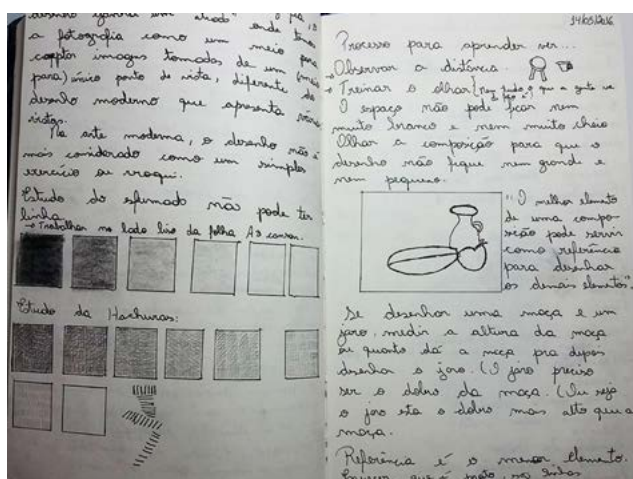 desenho ganhar um
a fotografia como um meio para
captar imagens tomadas de um (meio
para) único ponto de vista, diferente do
desenho moderno que apresenta várias
vistas.
Na arte moderna, o desenho não é
mais considerado como um simples
exercício ou croqui.
Estudo do esfumado não pode ter
linha.
→ Trabalhar no lado liso da folha A3 canson.
Estudo da Hachuras:
14/03/2016
Processo para aprender ver...
- Observar a distância.
→ Treinar o olhar (Nem tudo o que a gente ve
O espaço não pode ficar nem
muito branco e nem muito cheio
Olhar a composição para que o
desenho não fique nem grande e
nem pequeno.
"O melhor elemento
de uma compo-
sição pode servir
como referência
para desenhar
os demais elementos".
Se desenhar uma maça e um
jaro, medir a altura da maça
ou quanto dá a maça pra depois
desenhar o jaro. (O jaro preciso
ser o dobro da maça. (Ou seja
o jaro sta o dobro mais alto que a
maça.
Referência é o menor elemento.